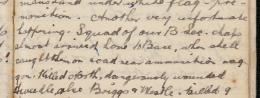 under white flag - pre-
monition. Another very unfortunate
happening. Squad of our B sec. chaps
almost arrived home to Base, when shell
caught them on road near ammunition wag-
gon. Killed both, dangerously wounded
also Briggs & Westle. Killed 9